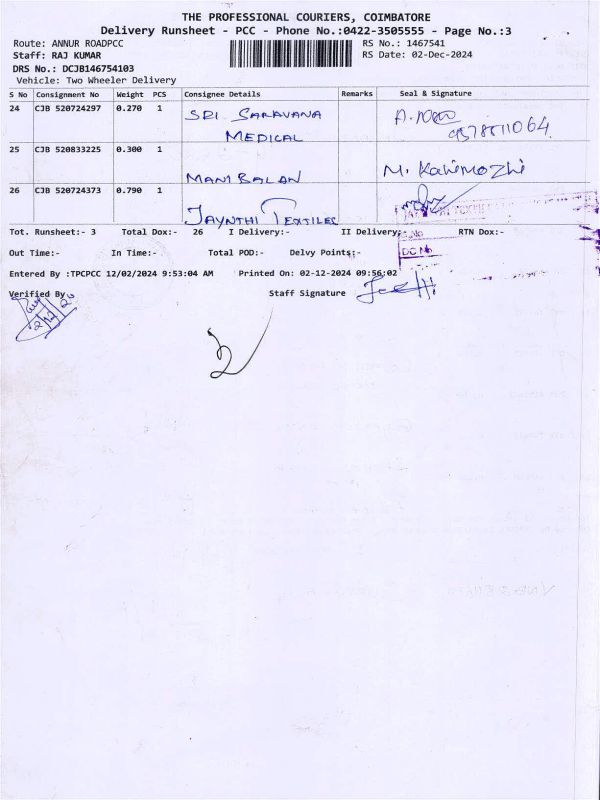 THE PROFESSIONAL COURIERS, COIMBATORE
Delivery Runsheet - PCC - Phone No.:0422-3505555 - Page No.:3
Route: ANNUR ROADPCC RS No.: 1467541
Staff: RAJ KUMAR RS Date: 02-Dec-2024
DRS No.: DCJB146754103
Vehicle: Two Wheeler Delivery
S No Consignment No Weight PCS Consignee Details Remarks Seal & Signature
24 CJB 520724297 0.270 1 SRI SARAVANA MEDICAL 9578811064
25 CJB 520833225 0.300 1 MANIBALAN M. Kalimozhi
26 CJB 520724373 0.790 1 JAYNTHI TEXTILES
Tot. Runsheet:- 3 Total Dox:- 26 I Delivery:- II Delivery:- RTN Dox:-
DC No
Out Time:- In Time:- Total POD:- Delvy Points:-
Entered By :TPCPCC 12/02/2024 9:53:04 AM Printed On: 02-12-2024 09:56:02
Verified By Staff Signature